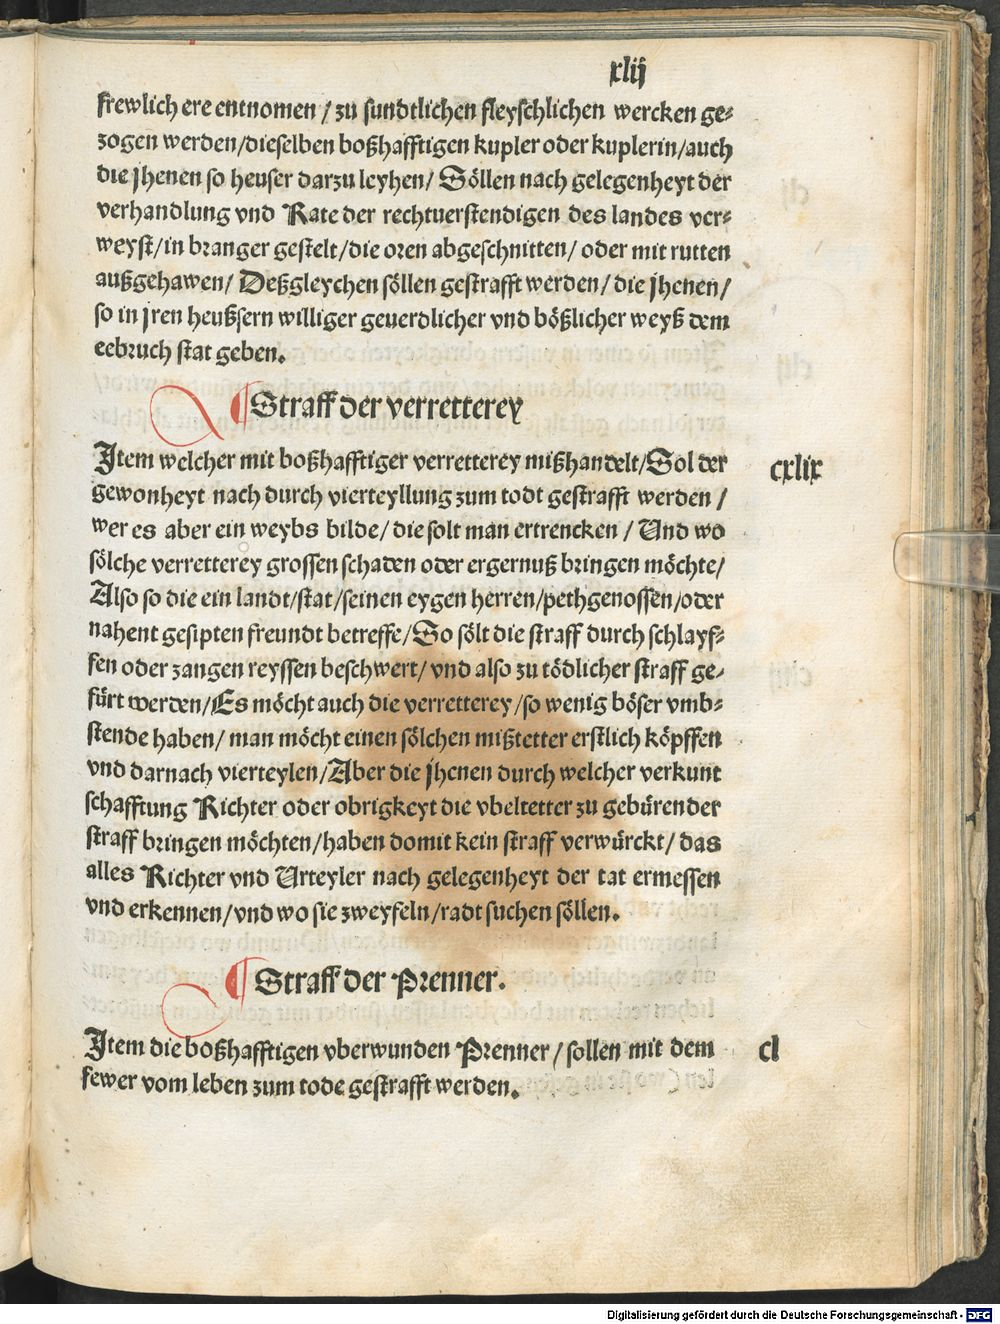 xlij
frewlich ere entnomen / zu sundtlichen fleyschlichen wercken ge⸗
zogen werden/dieselben boßhafftigen kupler oder kuplerin/auch
die jhenen so heuser darzu leyhen/ Söllen nach gelegenheyt der
verhandlung vnd Rate der rechtuerstendigen des landes ver⸗
weyst/in branger gestelt/die oren abgeschnitten/ oder mit rutten
außgehawen/ Deßgleychen söllen gestrafft werden/ die jhenen/
so in jren heußsern williger geuerdlicher vnd bößlicher weyß dem
eebruch stat geben.
¶ Straff der verretterey
Item welcher mit boßhafftiger verretterey mißhandelt/Sol der
gewonheyt nach durch vierteyllung zum todt gestrafft werden /
wer es aber ein weybs bilde/ die solt man ertrencken / Und wo
sölche verretterey grossen schaden oder ergernuß bringen möchte/
Also so die ein landt/stat/seinen eygen herren/pethgenossen/oder
nahent gesipten freundt betreffe/So sölt die straff durch schlayf⸗
fen oder zangen reyssen beschwert/ vnd also zu tödlicher straff ge⸗
fürt werden/Es möcht auch die verretterey/so wenig böser vmb⸗
stende haben/ man möcht einen sölchen mißtetter erstlich köpffen
vnd darnach vierteylen/Aber die jhenen durch welcher verkunt
schafftung Richter oder obrigkeyt die vbeltetter zu gebürender
straff bringen möchten/haben domit kein straff verwürckt/ das
alles Richter vnd Urteyler nach gelegenheyt der tat ermessen
vnd erkennen/vnd wo sie zweyfeln/radt suchen söllen.
cxlix
¶ Straff der Prenner.
Item die boßhafftigen vberwunden Prenner/ sollen mit dem
fewer vom leben zum tode gestrafft werden.
cl
Digitalisierung gefördert durch die Deutsche Forschungsgemeinschaft - DFG